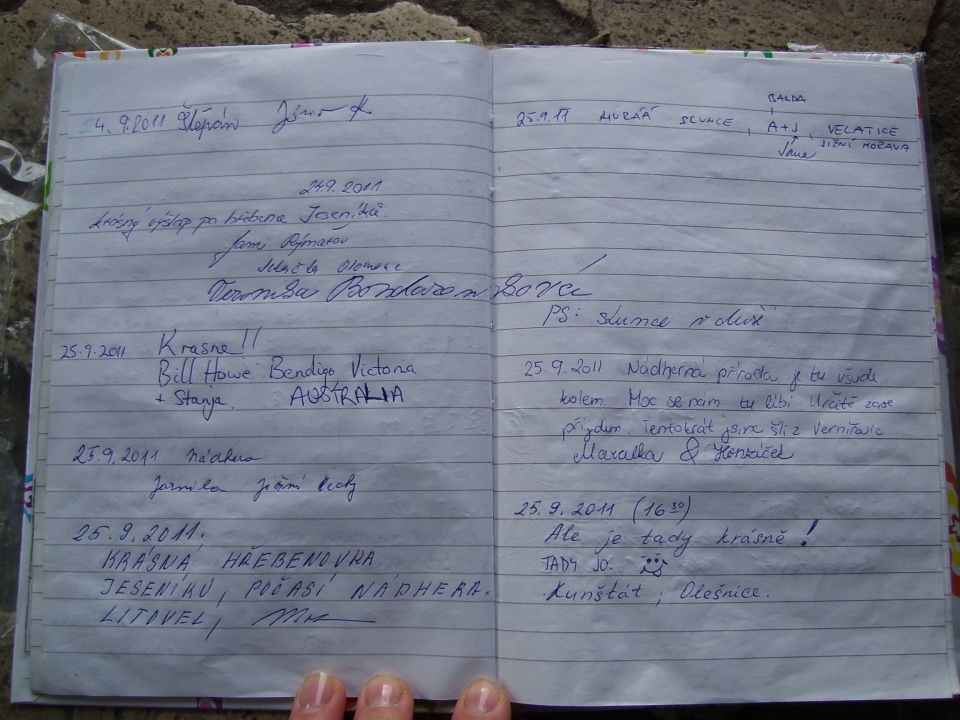 24.9.2011 Štěpán
24.9.2011
krásný výšlap po hřebenu Jeseníků
Jami Rýmařov
Olomouc
Veronika
PS: slunce v duši
25.9.2011 Krasne!!
Bill Howe Bendigo Victoria
+ Stanja AUSTRALIA
25.9.2011 nádhera
Jarmila jižní Čechy
25.9.2011.
KRÁSNÁ HŘEBENOVKA
JESENÍKŮ, POČASÍ NÁDHERA.
LITOVEL,
BALDA
25.9.11 HURÁÁ SLUNCE, A+J, VELATICE
Jana JIŽNÍ MORAVA
25.9.2011 Nádherná příroda je tu všude
kolem. Moc se nám tu líbí. Určitě zase
přijdem. Tentokrát jsme šli z Vernířovic
Maralka & Honzáček
25.9.2011 (16 30)
Ale je tady krásně!
TADY JO.
Kunštát, Olešnice.